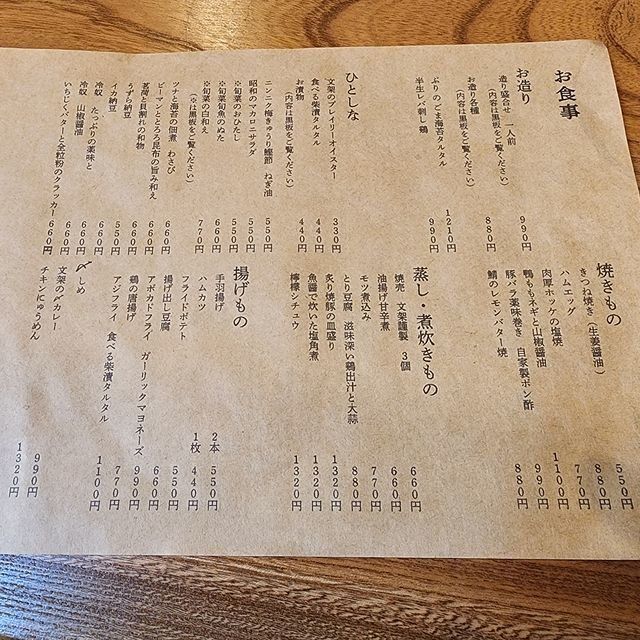 お食事
お造り
造り盛合せ 一人前
(内容は黒板をご覧ください) 990円
お造り各種
(内容は黒板をご覧ください) 880円
ぶりのごま海苔タルタル 1210円
半生レバ刺し鶏 990円
ひとしな
文架のプレイリーオイスター 330円
食べる柴漬タルタル 440円
お漬物
(内容は黒板をご覧ください) 440円
ニンニク梅きゅうり鰹節 ねぎ油 550円
昭和のマカロニサラダ 550円
※旬菜のおひたし 550円
※旬菜旬魚のぬた 660円
※旬菜の白和え 770円
(※は黒板をご覧ください)
ツナと海苔の佃煮 わさび 660円
ピーマンととろろ昆布の旨み和え 660円
茗荷と貝割れの和物 660円
うずら納豆 550円
イカ納豆 660円
冷奴 たっぷりの薬味と 660円
冷奴 山椒醤油 660円
いちじくバターと全粒粉のクラッカー 660円
焼きもの
きつね焼き(生姜醤油) 550円
ハムエッグ 880円
肉厚ホッケの塩焼 770円
鴨ももネギと山椒醤油 1100円
豚バラ薬味巻き 自家製ポン酢 990円
鯖のレモンバター焼 880円
蒸し・煮炊きもの
焼売 文架謹製 3個 660円
油揚げ甘辛煮 660円
モツ煮込み 770円
とり豆腐 滋味深い鶏出汁と大蒜 880円
炙り焼豚の皿盛り 1320円
魚醤で炊いた塩角煮 1320円
檸檬シチュウ 1320円
揚げもの
手羽揚げ 2本 550円
ハムカツ 1枚 440円
フライドポテト 550円
揚げ出し豆腐 660円
アボカドフライ ガーリックマヨネーズ 990円
鶏の唐揚げ 770円
アジフライ 食べる柴漬タルタル 1100円
〆 しめ
文架の〆カレー 990円
チキンにゅうめん 1320円